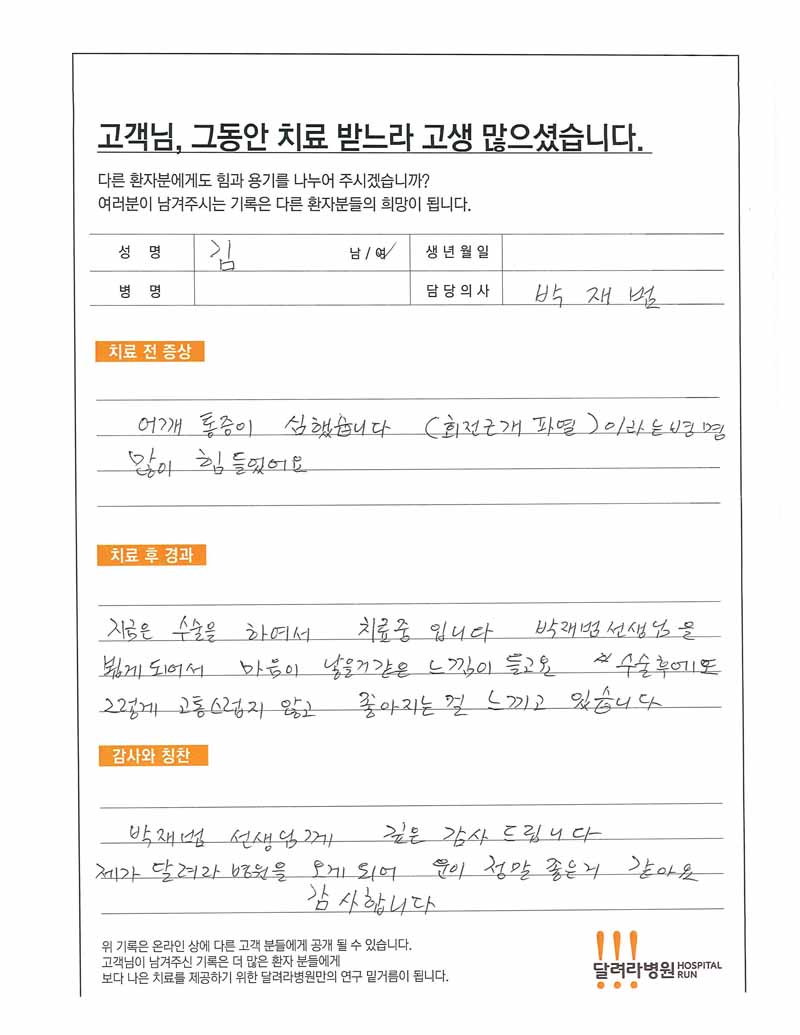 고객님, 그동안 치료 받느라 고생 많으셨습니다.
다른 환자분에게도 힘과 용기를 나누어 주시겠습니까?
여러분이 남겨주시는 기록은 다른 환자분들의 희망이 됩니다.
성 명 김 남 / 여 생 년 월 일
병 명 담 당 의 사 박 재 범
치료 전 증상
어깨 통증이 심했습니다 (회전근개 파열)이라는 병명
많이 힘들었어요
치료 후 경과
지금은 수술을 하여서 치료중 입니다 박재범선생님을
뵙게되어서 마음이 낳을거같은 느낌이 들고요 수술후에도
그렇게 고통스럽지 않고 좋아지는 걸 느끼고 있습니다
감사와 칭찬
박재범 선생님께 깊은 감사드립니다
제가 달려라 병원을 오게 되어 운이 정말 좋은거 같아요
감사합니다
위 기록은 온라인 상에 다른 고객 분들에게 공개 될 수 있습니다.
고객님이 남겨주신 기록은 더 많은 환자 분들에게
보다 나은 치료를 제공하기 위한 달려라병원만의 연구 밑거름이 됩니다.
달려라병원 HOSPITAL RUN